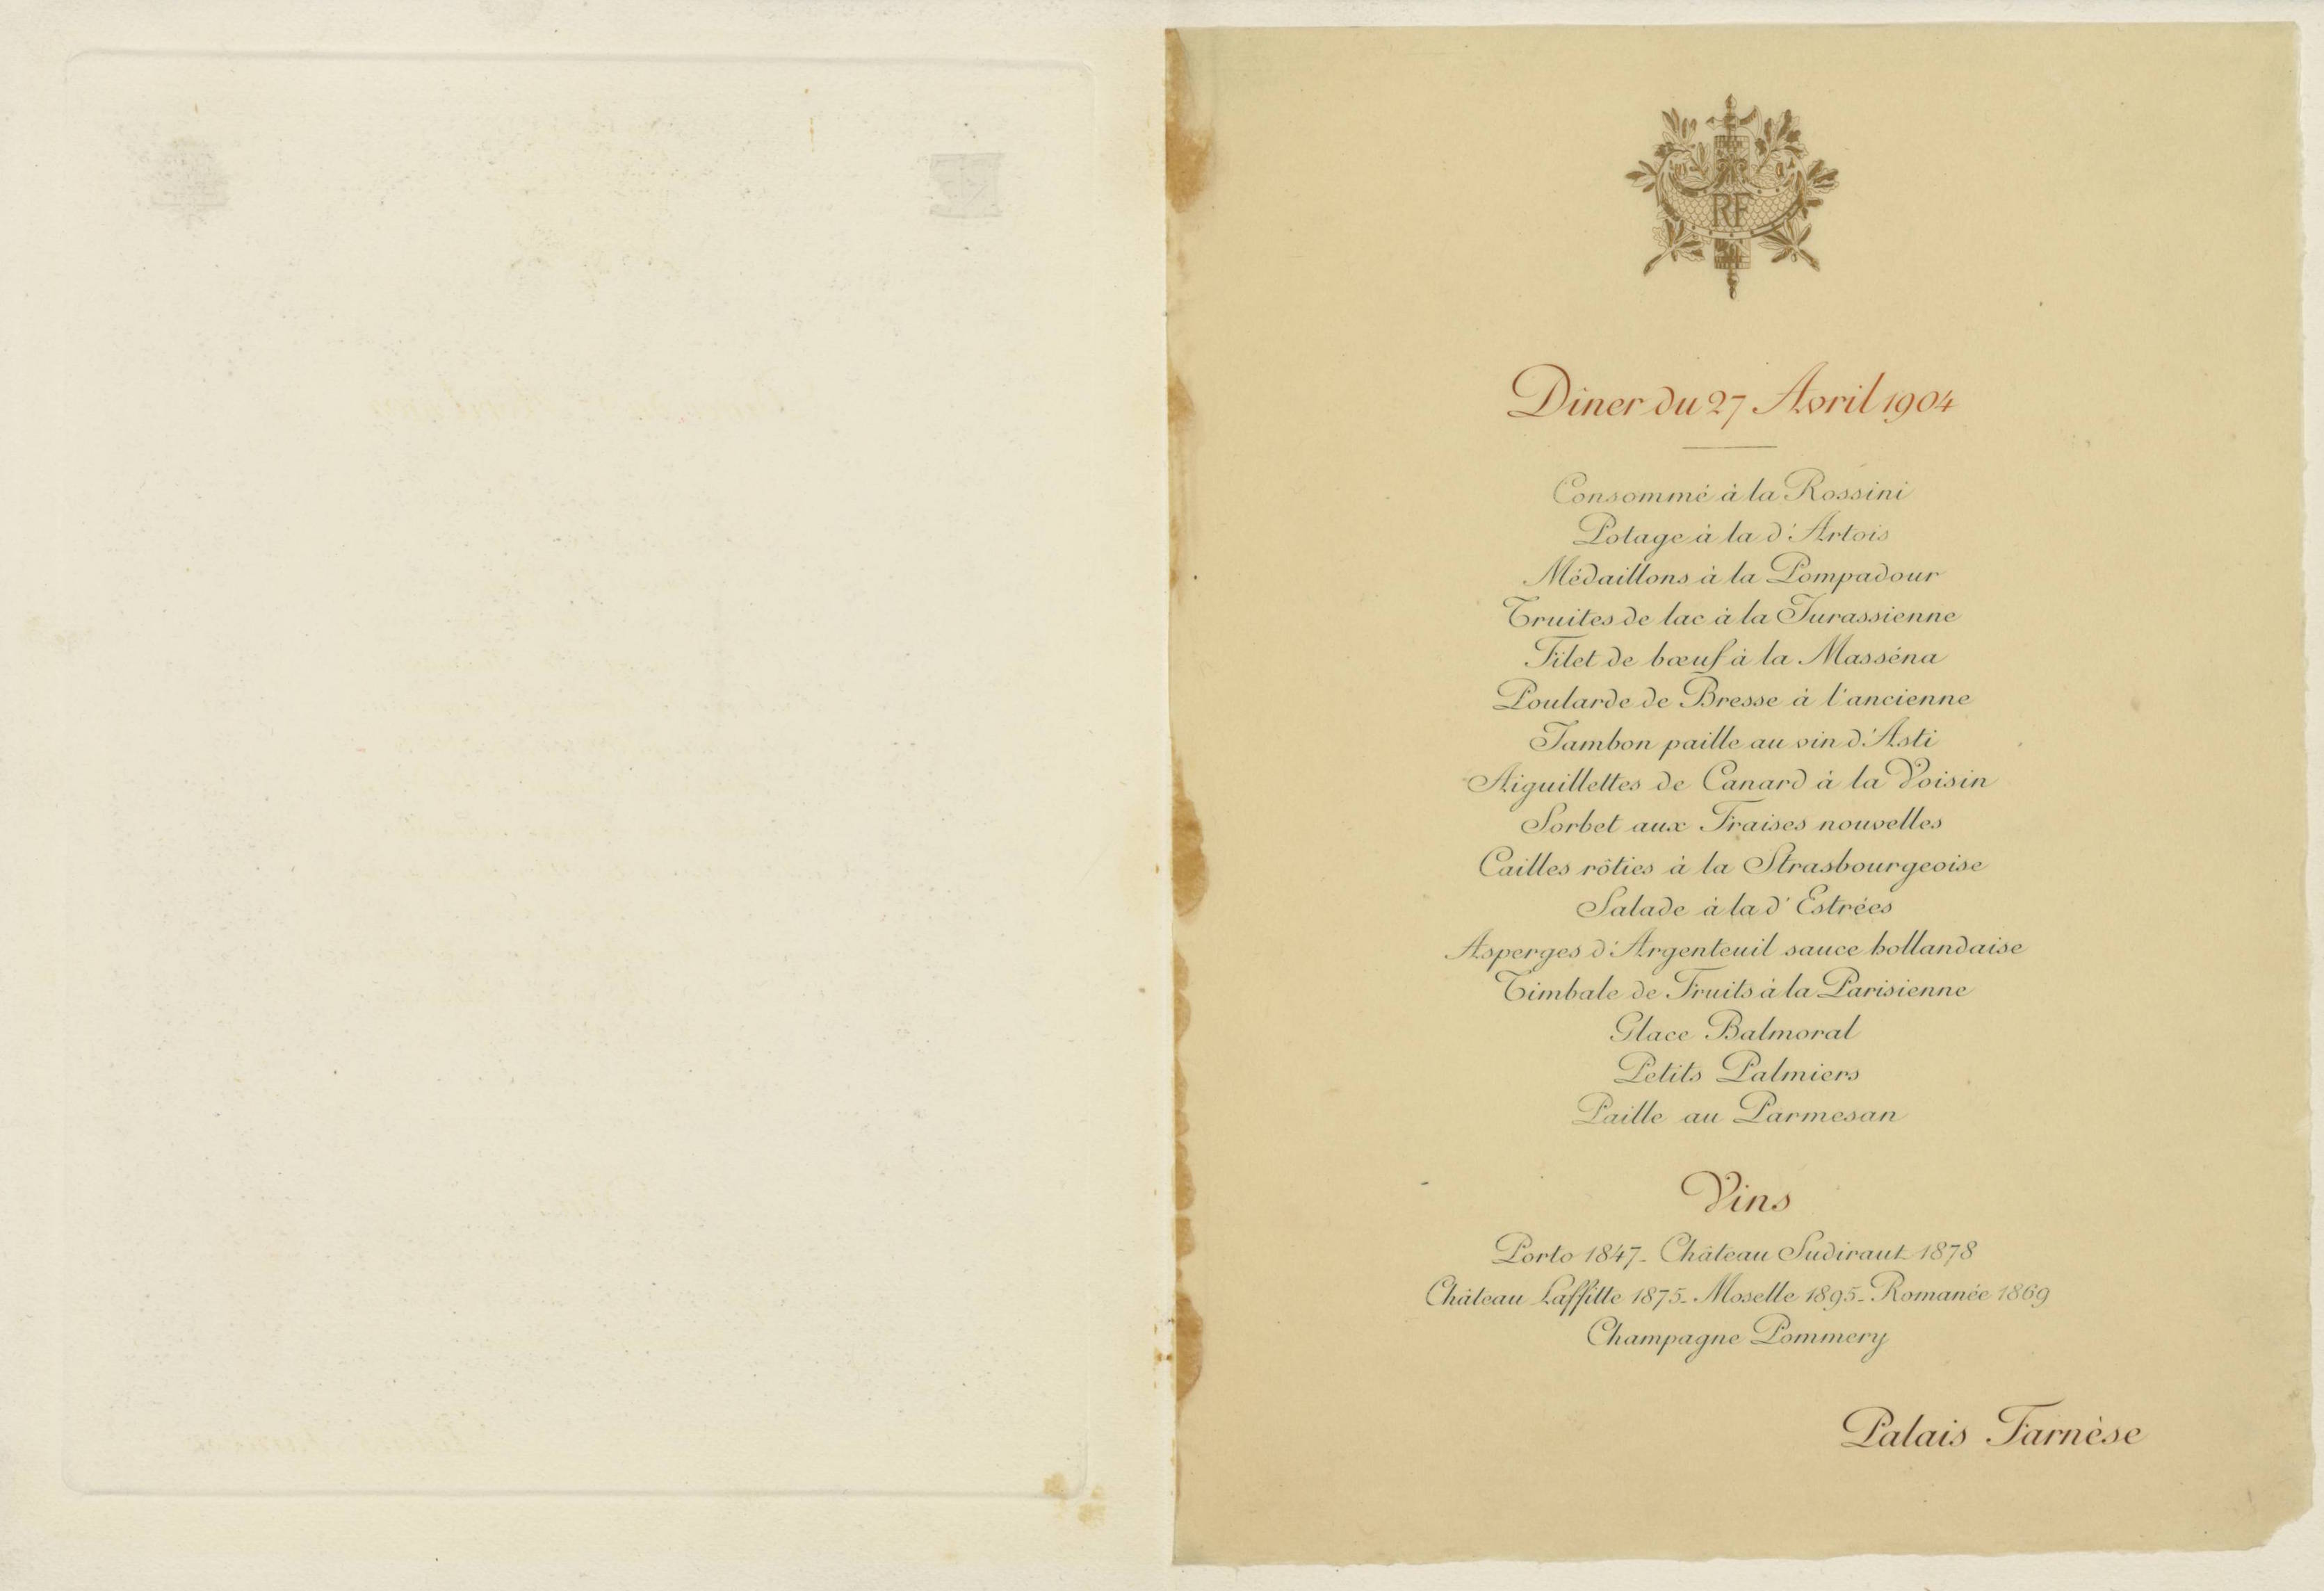 RF
Diner du 27 Avril 1904
Consommé à la Rossini
Potage à la d'Artois
Médaillons à la Pompadour
Truites de lac à la Jurassienne
Filet de bœuf à la Masséna
Poularde de Bresse à l'ancienne
Jambon paille au vin d'Asti
Aiguillettes de Canard à la Voisin
Sorbet aux Fraises nouvelles
Cailles rôties à la Strasbourgeoise
Salade à la d'Estrées
Asperges d'Argenteuil sauce hollandaise
Timbale de Fruits à la Parisienne
Glace Balmoral
Petits Palmiers
Paille au Parmesan
Vins
Porto 1847 - Château Sudiraut 1878
Château Laffitte 1875 - Moselle 1895 - Romanée 1869
Champagne Pommery
Palais Farnèse